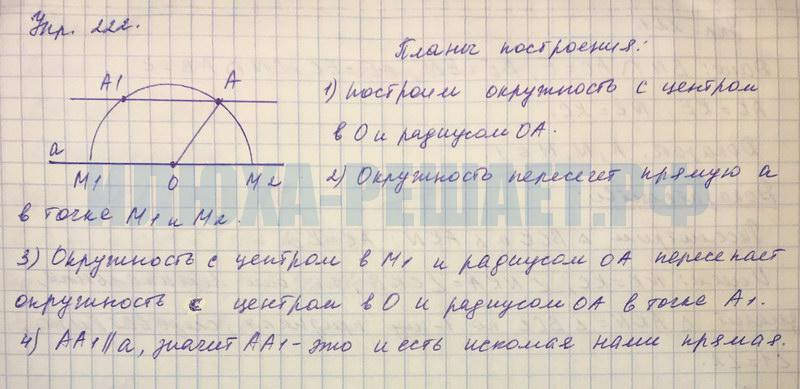 Упр. 222.
Планы построения:
A1 A
a
M1 O M2
1) построим окружность с центром
в O и радиусом OA.
2) Окружность пересечет прямую a
в точке M1 и M2.
ИЛЮХА-РЕШАЕТ.РФ
3) Окружность с центром в M1 и радиусом OA пересекает
окружность с центром в O и радиусом OA в точке A1.
4) AA1 || a, значит AA1 - это и есть искомая нами прямая.